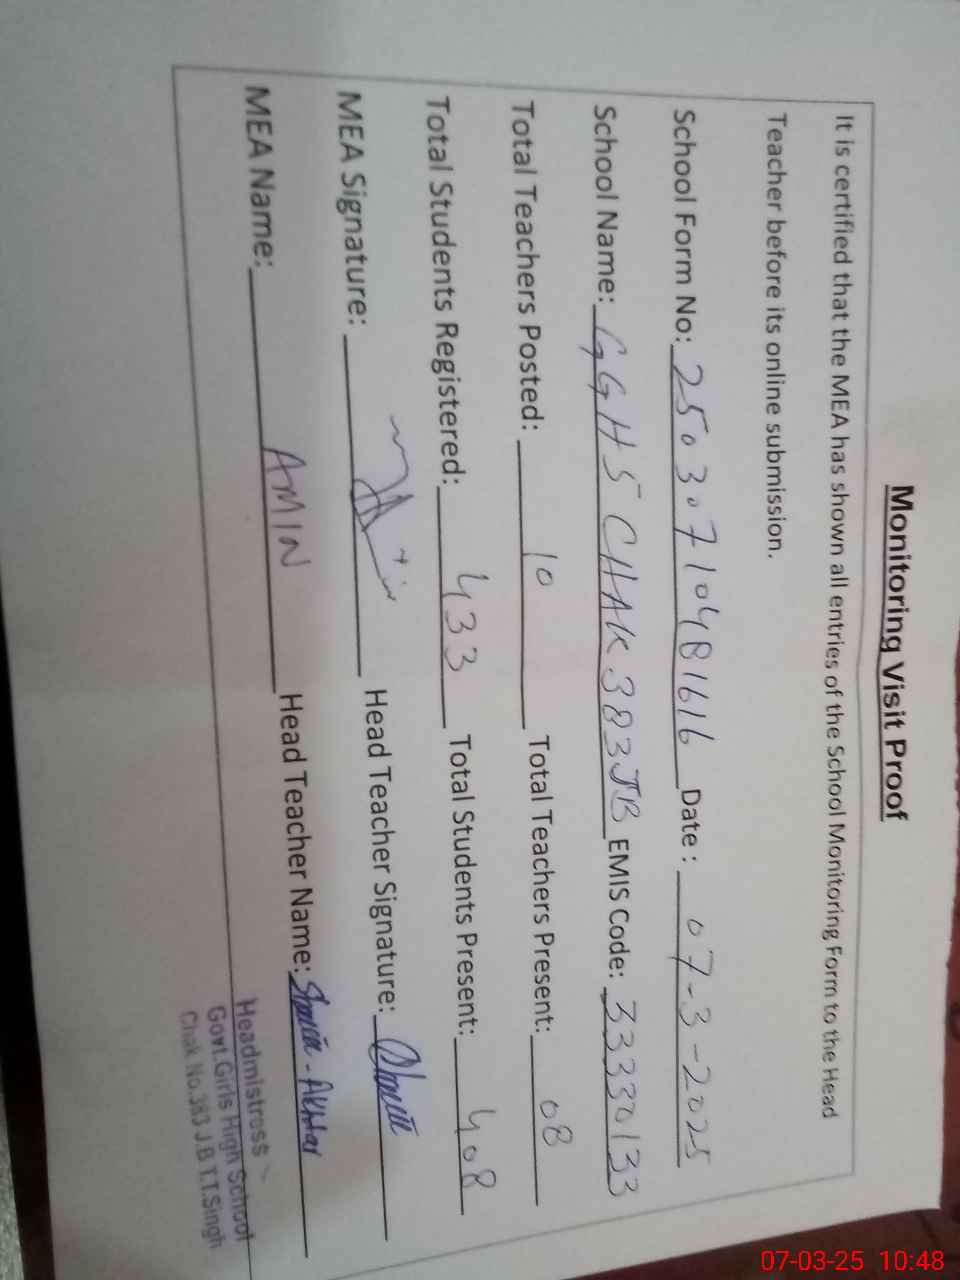 Monitoring Visit Proof
It is certified that the MEA has shown all entries of the School Monitoring Form to the Head
Teacher before its online submission.
School Form No: 25030710481616 Date: 07-3-2025
School Name: GGHS CHAK 383JB EMIS Code: 33330133
Total Teachers Posted: 10 Total Teachers Present: 08
Total Students Registered: 433 Total Students Present: 408
MEA Signature: Head Teacher Signature:
MEA Name: AMIN Head Teacher Name: Akhtar
Headmistress
Govt.Girls High School
Chak No.383 J.B T.T.Singh
07-03-25 10:48